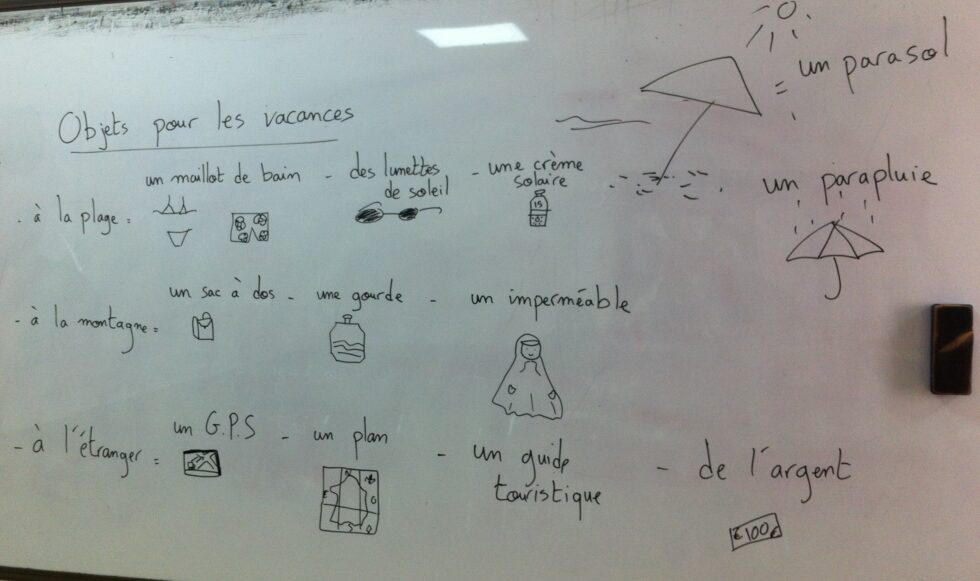 un parasol
=
Objets pour les vacances
un maillot de bain - des lunettes de soleil - une crème solaire
- à la plage =
15
un parapluie
un sac à dos - une gourde - un imperméable
- à la montagne =
un G.P.S - un plan - un guide touristique - de l'argent
- à l'étranger =
€100€